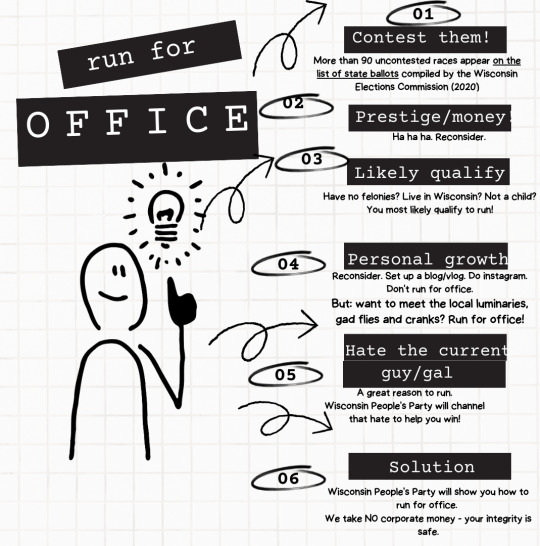 run for
OFFICE
01
Contest them!
More than 90 uncontested races appear on the
list of state ballots compiled by the Wisconsin
Elections Commission (2020)
02
Prestige/money!
Ha ha ha. Reconsider.
03
Likely qualify
Have no felonies? Live in Wisconsin? Not a child?
You most likely qualify to run!
04
Personal growth
Reconsider. Set up a blog/vlog. Do instagram.
Don't run for office.
But: want to meet the local luminaries,
gad flies and cranks? Run for office!
05
Hate the current
guy/gal
A great reason to run.
Wisconsin People's Party will channel
that hate to help you win!
06
Solution
Wisconsin People's Party will show you how to
run for office.
We take NO corporate money - your integrity is
safe.